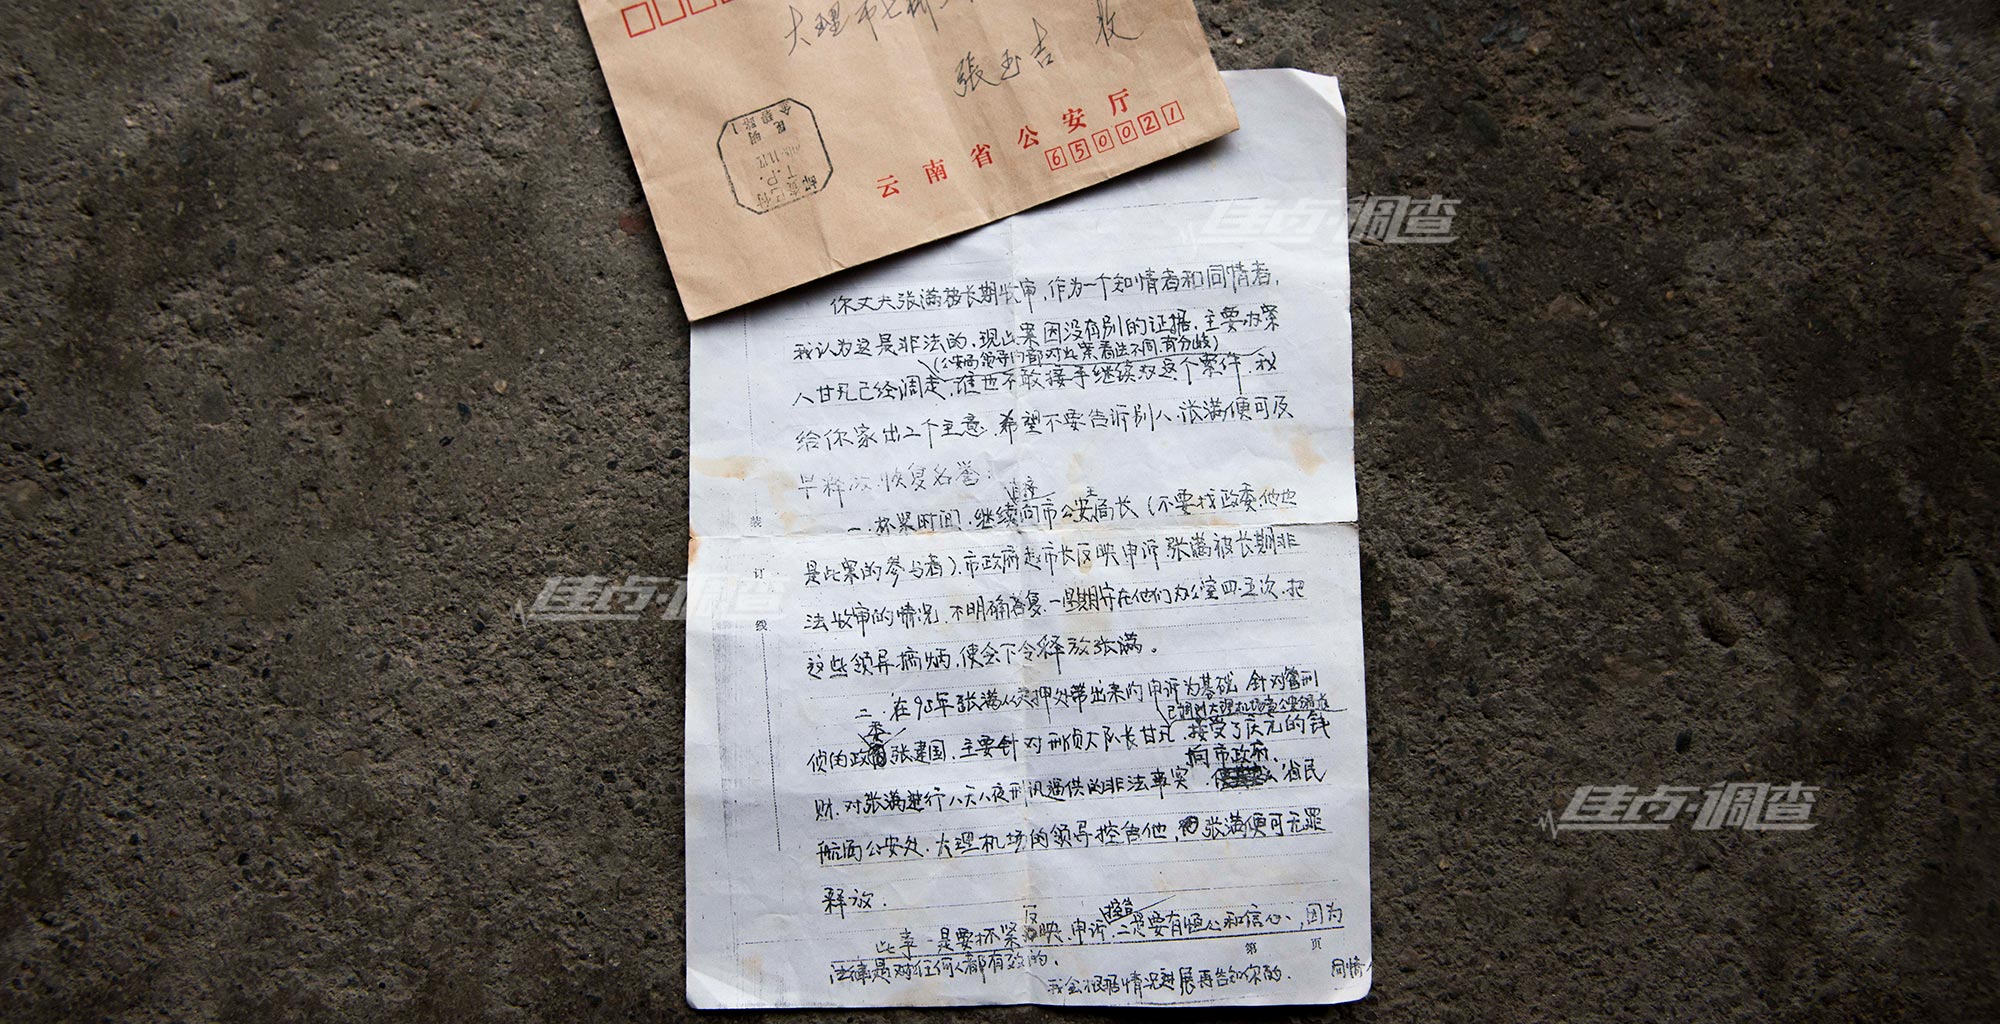 大理市七
張玉吉 收
云南省公安厅
650021
昆明
金碧路1
T.P.
邮资已付
焦点·调查
你丈夫张满被长期收审,作为一个知情者和同情者,
我认为这是非法的,现此案因没有别的证据,主要办案
(公安局领导内部对此案看法不同,有分歧)
人甘孔已经调走,谁也不敢接手继续办这个案件,我
给你家出二个主意,希望不要告诉别人,张满便可及
早释放,恢复名誉:
一.抓紧时间,继续向市公安局王局长(不要找政委他也
是此案的参与者),市政府赵市长反映申诉张满被长期非
法收审的情况,不明确答复,一星期守在他们办公室四、五次,把
这些领导搞烦,便会下令释放张满。
二.在95年张满从关押处带出来的申诉为基础,针对管刑
已调到大理机场当公安
侦的政委张建国,主要针对刑侦大队长甘孔,接受了庆元的钱
向市政府,
财,对张满进行八天八夜刑讯逼供的非法事实,省民
航局公安处,大理机场的领导控告他,张满便可无罪
释放.
此事一是要抓紧反映,申诉,控告,二是要有恒心和信心,因为
法律是对任何人都有效的.
我会根据情况进展再告知你的.
同情
装
订
线
第 页
焦点·调查
焦点·调查